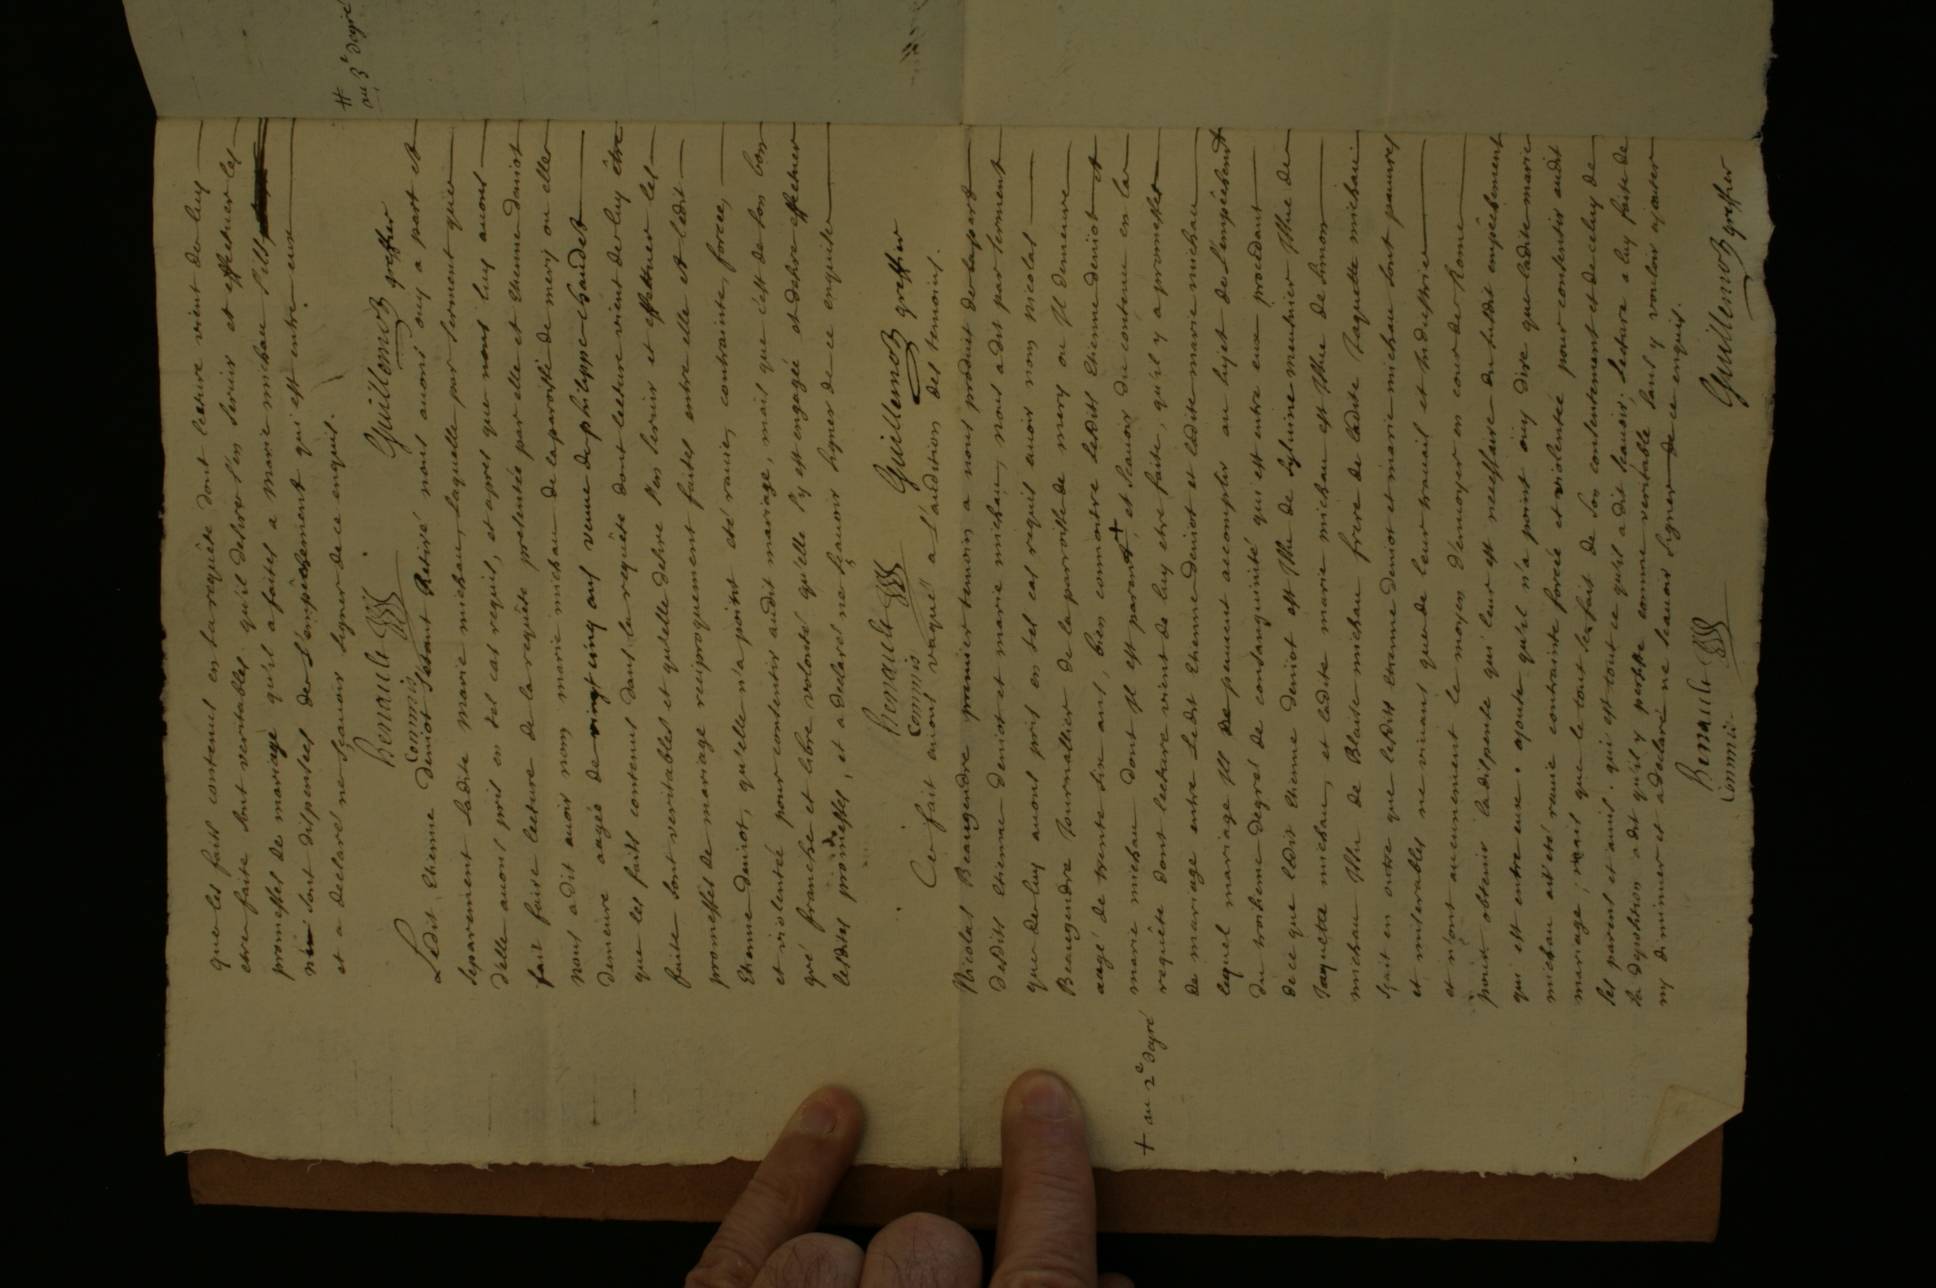 que les faits contenus en la requête dont lecture vient de luy
etre faite sont veritables. qu'il desire s'en servir et effectuer les
promesses de mariage qu'il a faites a marie michau s'ils
sont dispensés de l'empêchement qui est entre eux
et a declaré ne sçavoir signer de ce enquis.
Renault Guillemot greffier
commis
Ledit Etienne deniot s'étant Retiré nous avons ouy a part et
separement ladite marie michau, laquelle par serment que
d'elle avons pris en tel cas requis, et apres que nous luy avons
fait faire lecture de la requête presentée par elle et Etienne deniot
nous a dit avoir nom marie michau de la paroisse de mery ou elle
demeure aagée de vingt cinq ans veuve de philippe chaudet
que les faits contenus dans la requête dont lecture vient de luy être
faite sont veritables et qu'elle desire s'en servir et effectuer les
promesses de mariage reciproquement faites entre elle et ledit
Etienne deniot, qu'elle n'a point été ravie, contrainte, forcée,
et violentée pour consentir audit mariage, mais que c'est de son bon
gré franche et libre volonté qu'elle s'y est engagée et desire effectuer
lesdites promesses, et a declaré ne sçavoir signer de ce enquise
Renault Guillemot greffier
commis
Ce fait avons vaqué a l'audition des temoins.
Nicolas Beaugendre premier temoin a nous produit de la part
desdits Etienne deniot et marie michau, nous a dit par serment
que de luy avons pris en tel cas requis avoir nom Nicolas
Beaugendre Journallier de la parroisse de mery ou il demeure
aagé de trente six ans, bien connoitre lesdits Etienne deniot et
marie michau dont il est parent + et sçavoir du contenu en la
requête dont lecture vient de luy etre faite, qu'il y a promesses
de mariage entre Ledit Etienne deniot et ladite marie michau
lequel mariage ils ne peuvent accomplir au sujet de l'empêchement
du troisieme degré de consanguinité qui est entre eux procedant
de ce que ledit Etienne deniot est Issu de meunier Issue de
Jaquette michau, et ladite marie michau est Issue de Simon
michau Issu de Blaise michau frere de ladite Jaquette michau
sçait en outre que lesdits etienne deniot et marie michau sont pauvres
et miserables ne vivans que de leur travail et Industrie
et n'ont aucunement le moyen d'envoyer en cour de Rome
pour obtenir la dispense qui leur est necessaire dudit empêchement
qui est entre eux. ajoute qu'il n'a point ouy dire que ladite marie
michau ait été ravie contrainte forcée et violentée pour consentir audit
mariage, mais que le tout se fait de son consentement et de celuy de
ses parens et amis. qui est tout ce qu'il a dit sçavoir. Lecture a luy faite de
sa deposition a dit qu'il y persiste comme veritable sans y vouloir ajouter
ny diminuer et a declaré ne sçavoir signer de ce enquis.
Renault Guillemot greffier
commis
+ au 2e degré
#
au 3e degré